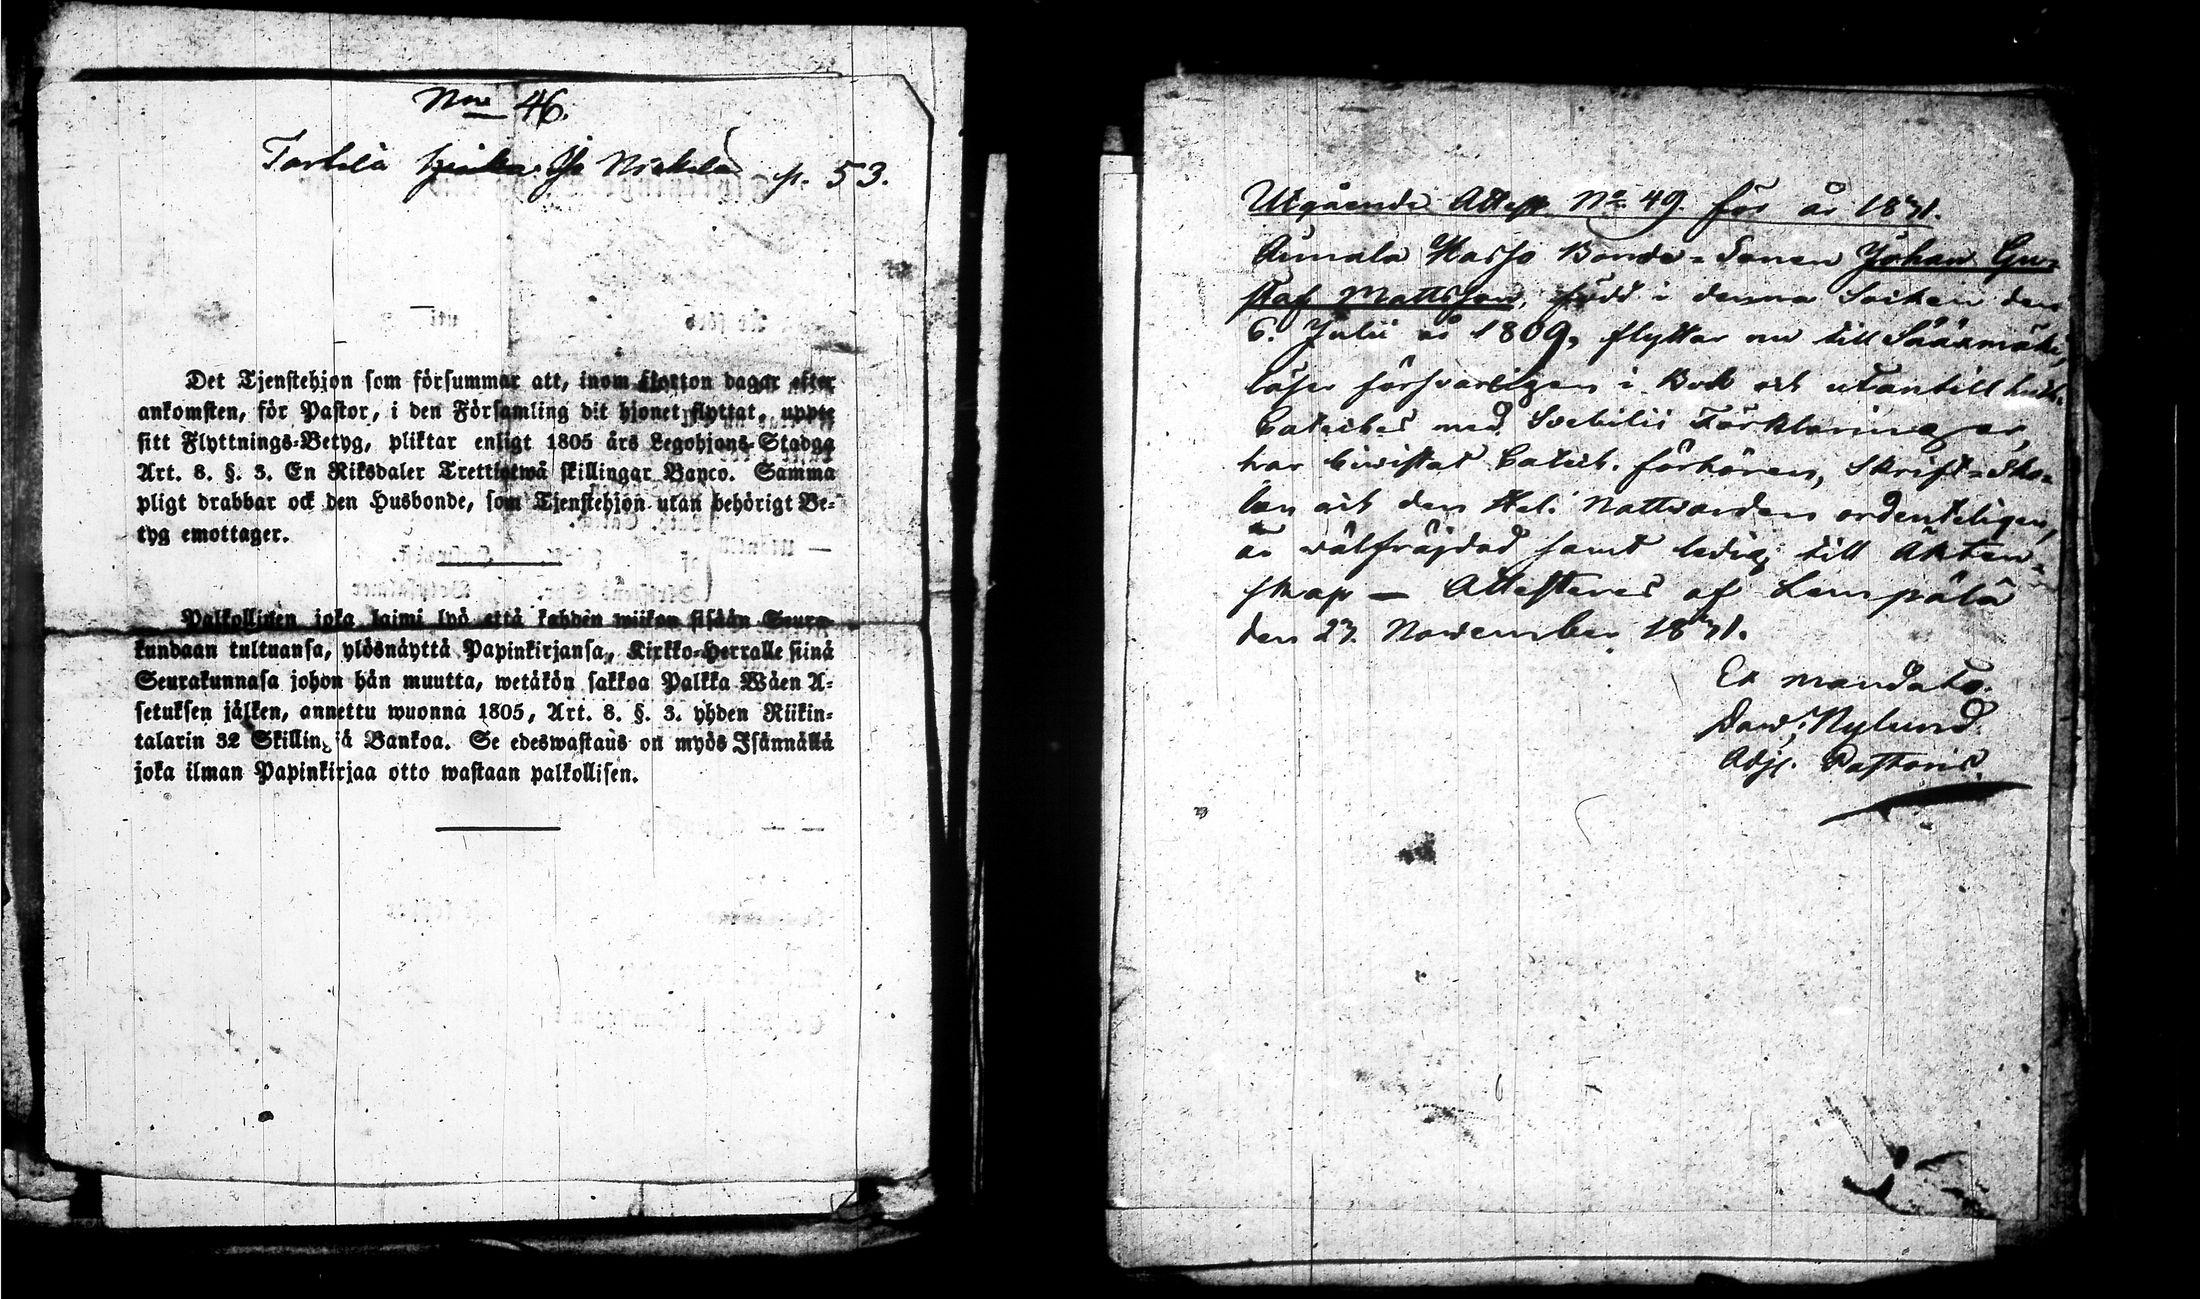 Nro 46.
Tarkela p. 53.
Det Tjenstehjon som försummar att, inom fiorton dagar efter
ankomsten, för Pastor, i den Församling dit hjonet flyttat, uppte
sitt Flyttnings-Betyg, pliktar enligt 1805 års Legohjons-Stadga
Art. 8. §. 3. En Riksdaler Trettiotwå skillingar Banco. Samma
pligt drabbar ock den Husbonde, som Tjenstehjon utan behörigt Be-
tyg emottager.
Palkollinen joka laimi lyö että kahden wiikon sisään Seura-
kundaan tultuansa, ylösnäyttä Papinkirjansa, Kirkko-Herralle siinä
Seurakunnasa johon hän muutta, wetäkön sakkoa Palkka Wäen A-
setuksen jälken, annettu wuonna 1805, Art. 8. §. 3. yhden Riikin-
talarin 32 Skillingiä Bankoa. Se edeswastaus on myös Isännällä
joka ilman Papinkirjaa otto wastaan palkollisen.
Utgående Attest No 49. för år 1831.
Bonde-Sonen Johan Gu-
staf Mattsson, född i denna Socken den
6. Julii år 1809, flyttar nu till Sääxmäki,
läser försvarligen i Bok och utantill Luth.
Cateches med Svebilii Förklaringar,
har biwistat Catech. förhören, Skrift-Sko-
lan och den Hel. Nattvarden ordenteligen,
är välfräjdad samt ledig till Äkten-
skap — Attesteras af Lempälä
den 27. November 1831.
Ex mandato.
Dav; Nylund.
Adj. Pastoris.